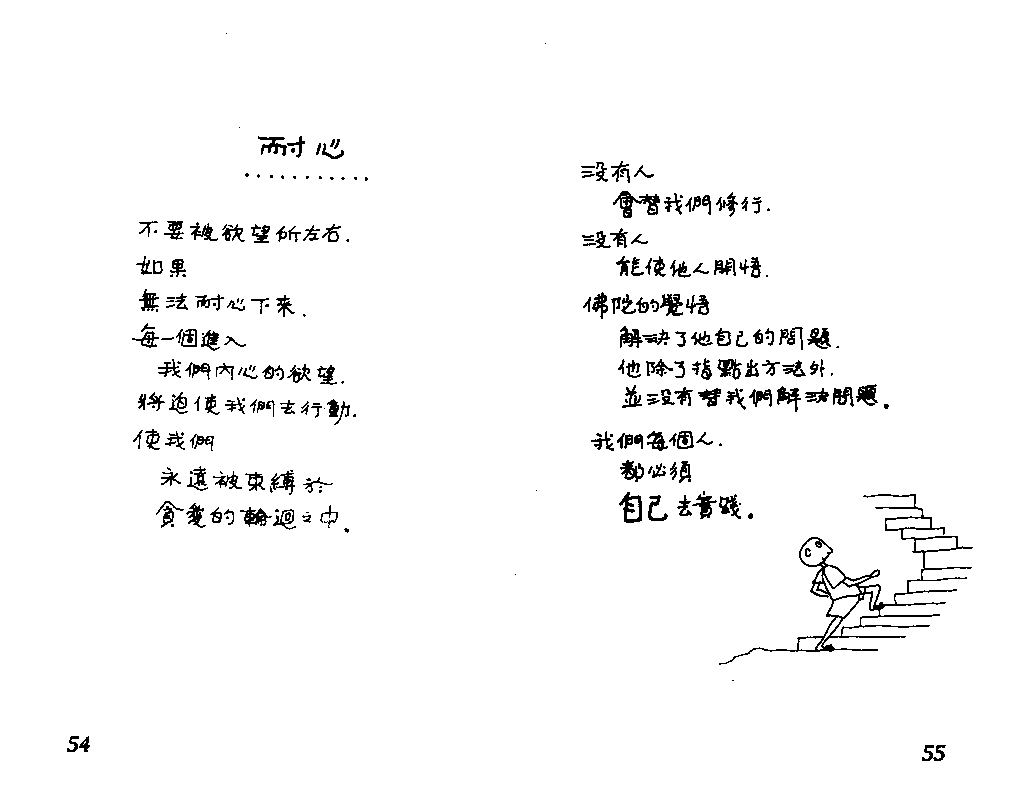 耐心
不要被欲望所左右.
如果
無法耐心下來.
每一個進入
我們內心的欲望.
將迫使我們去行動.
使我們
永遠被束縛於
貪愛的輪迴之中.
54
沒有人
會替我們修行.
沒有人
能使他人開悟.
佛陀的覺悟
解決了他自己的問題.
他除了指點出方法外.
並沒有替我們解決問題.
我們每個人.
都必須
自己去實踐.
55